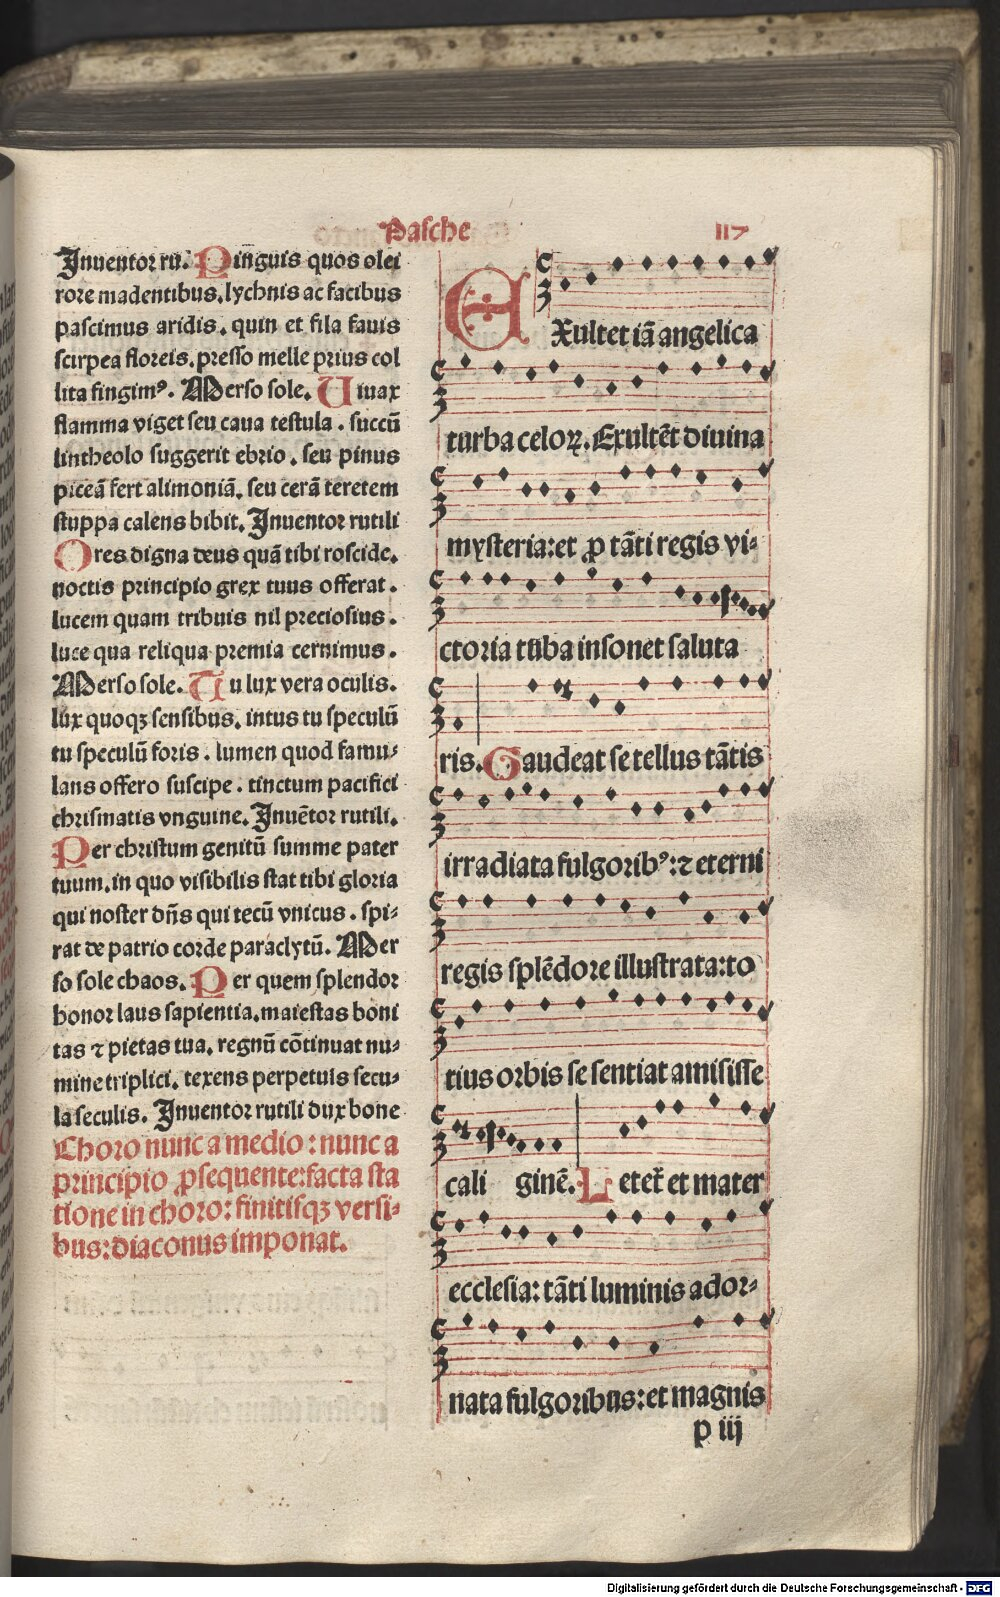 Pasche
117
Inuentor ru. Pinguis quos olei
rore madentibus. lychnis ac facibus
pascimus aridis. quin et fila fauis
scirpea floreis. presso melle prius col
lita fingimꝰ. Merso sole. Uiuax
flamma viget seu caua testula. succū
lintheolo suggerit ebrio. seu pinus
piceā fert alimoniā. seu cerā teretem
stuppa calens bibit. Inuentor rutili
Ores digna deus quā tibi roscide.
noctis principio grex tuus offerat.
lucem quam tribuis nil preciosius.
luce qua reliqua premia cernimus.
Merso sole. Tu lux vera oculis.
lux quoqꝫ sensibus. intus tu speculū
tu speculū foris. lumen quod famu⸗
lans offero suscipe. tinctum pacifici
chrismatis vnguine. Inuētor rutili.
Per christum genitū summe pater
tuum. in quo visibilis stat tibi gloria
qui noster dn̄s qui tecū vnicus. spi⸗
rat de patrio corde paraclytū. Mer
so sole chaos. Per quem splendor
honor laus sapientia. maiestas boni
tas ⁊ pietas tua. regnū cōtinuat nu⸗
mine triplici. texens perpetuis secu⸗
la seculis. Inuentor rutili dux bone
Choro nunc a medio: nunc a
principio ꝓsequente: facta sta
tione in choro: finitisqꝫ versi⸗
bus: diaconus imponat.
EXultet iā angelica
turba celoꝝ. Exultēt diuina
mysteria: et ꝓ tāti regis vi⸗
ctoria tuba insonet saluta
ris. Gaudeat se tellus tātis
irradiata fulgoribꝰ: ⁊ eterni
regis splēdore illustrata: to
tius orbis se sentiat amisisse
cali ginē. Letet᷑ et mater
ecclesia: tāti luminis ador⸗
nata fulgoribus: et magnis
p iij
Digitalisierung gefördert durch die Deutsche Forschungsgemeinschaft - DFG